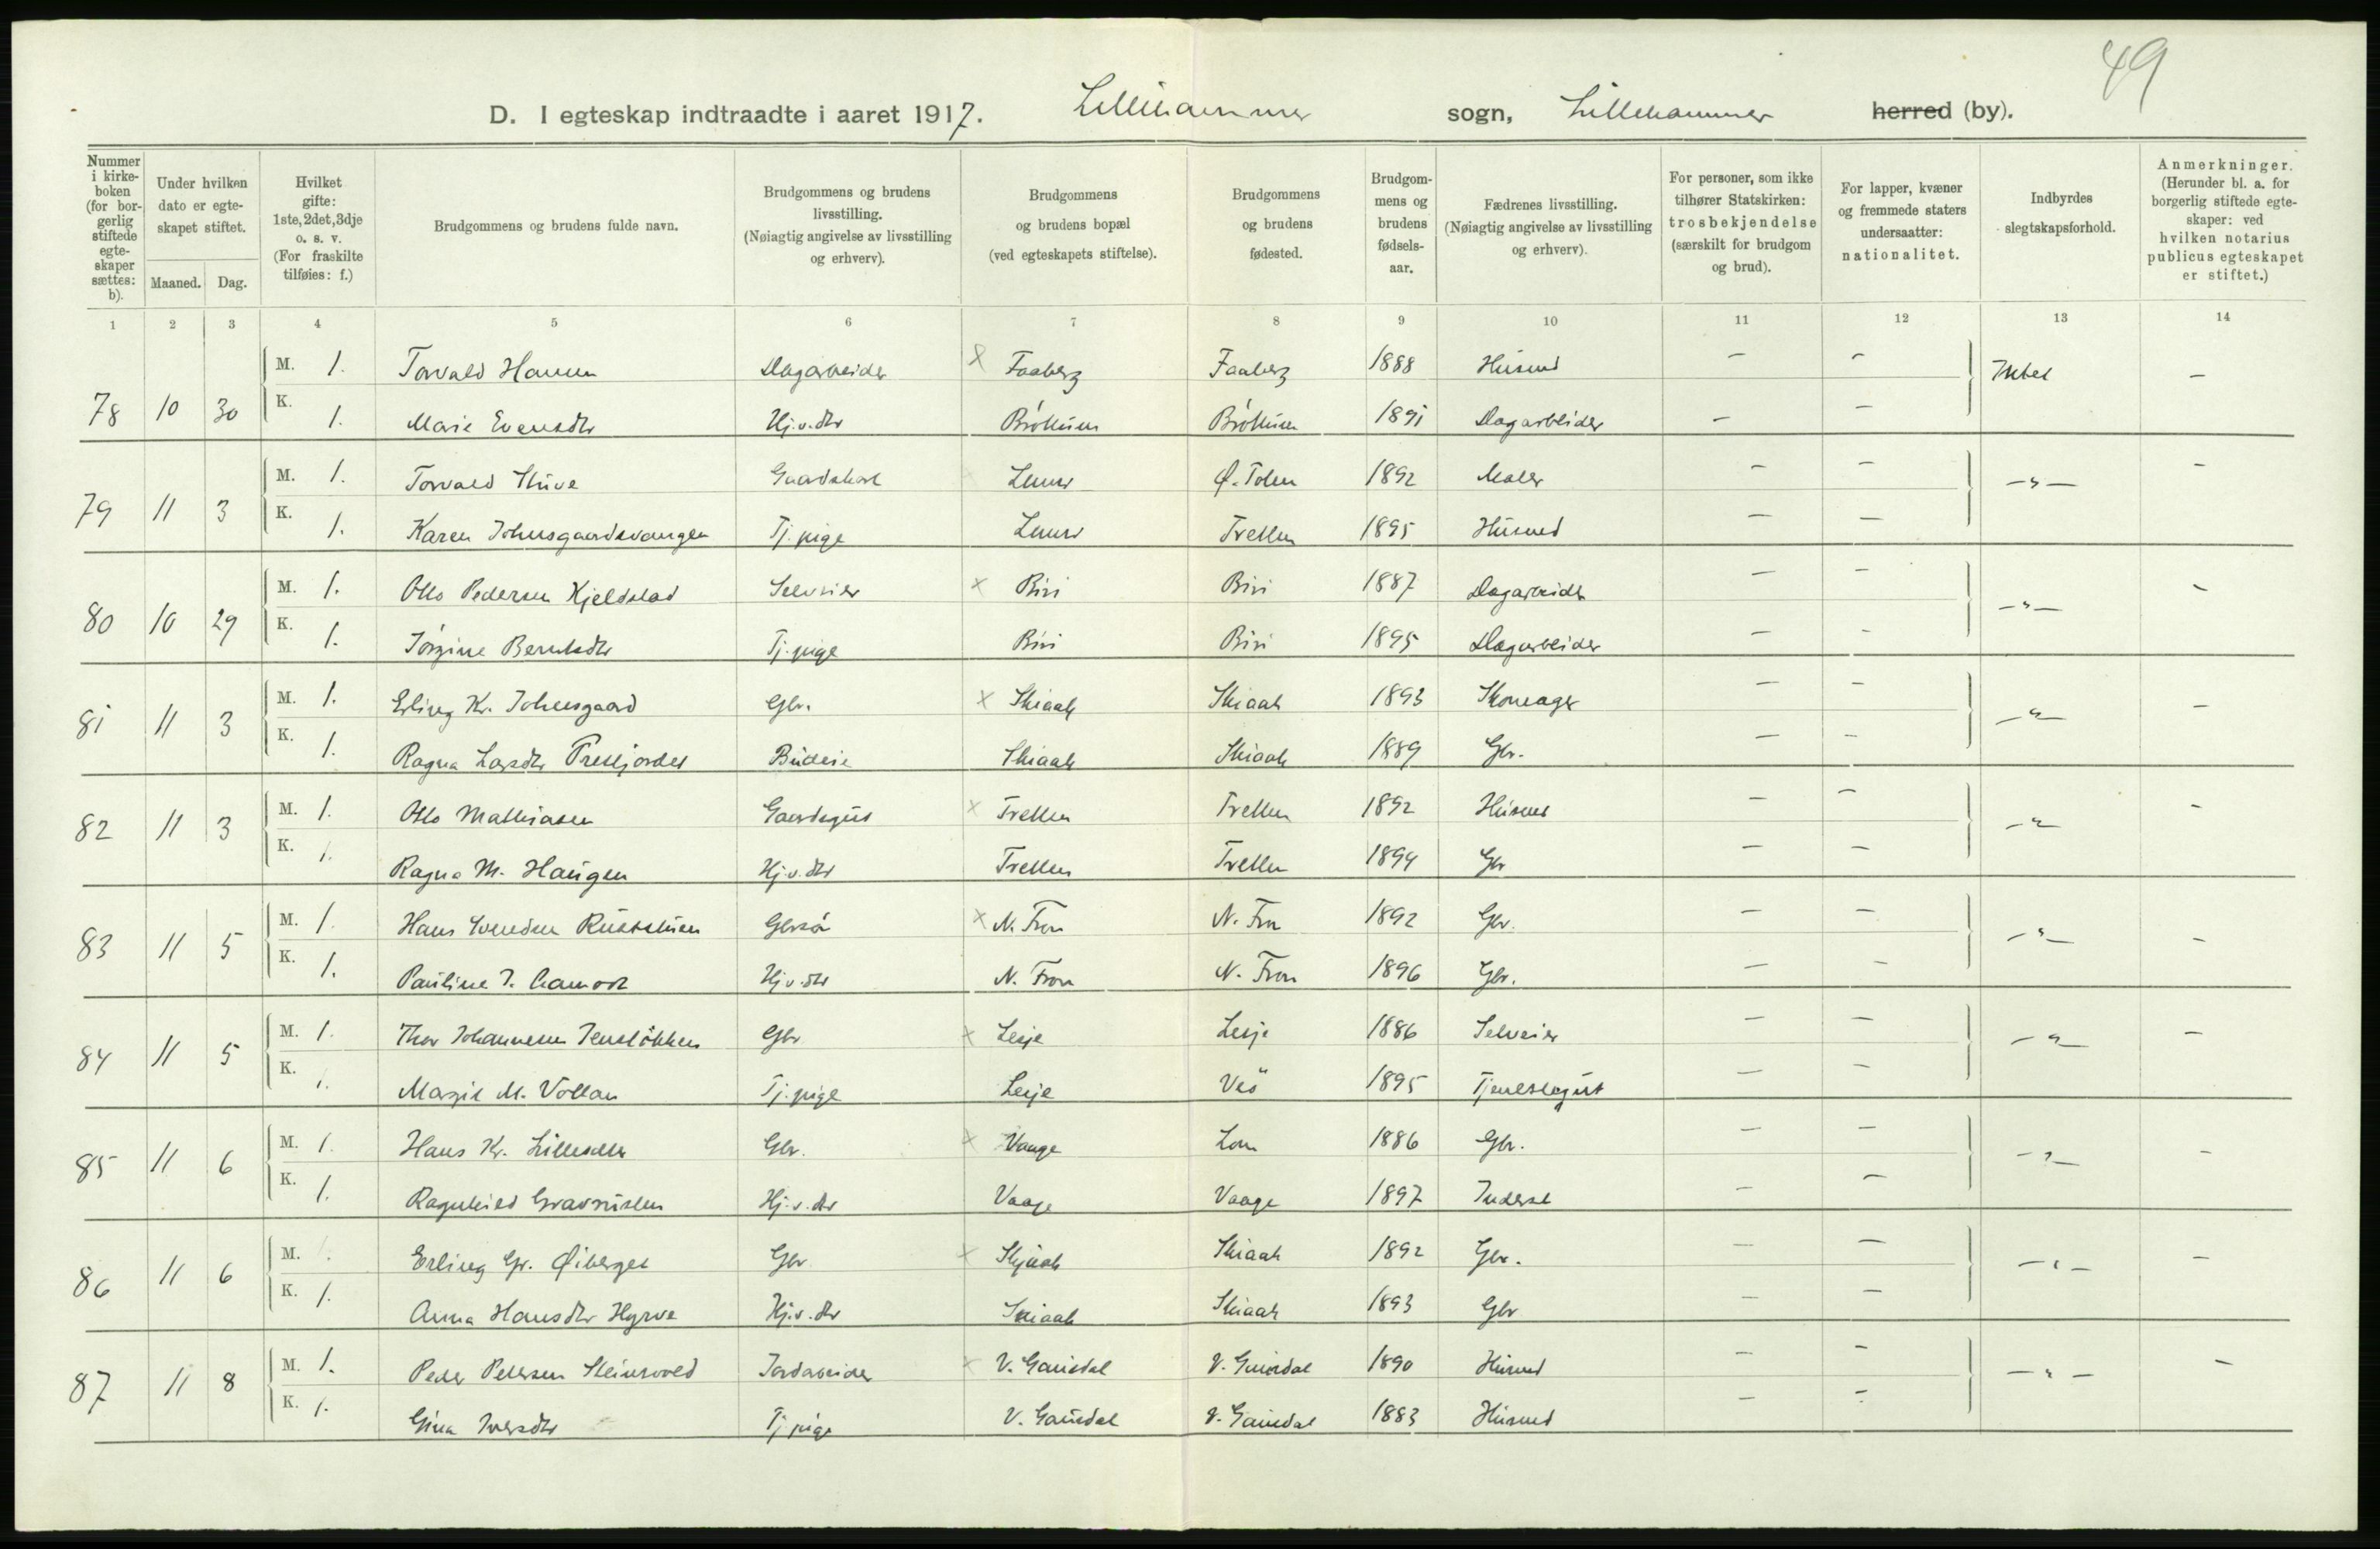 49
D. I egteskap indtraadte i aaret 1917. Lillehammer sogn, Lillehammer herred (by).
Nummer i kirkeboken (for borgerlig stiftede egteskaper sættes: b).
Under hvilken dato er egteskapet stiftet.
Maaned. Dag.
Hvilket gifte: 1ste, 2det, 3dje o. s. v. (For fraskilte tilføies: f.)
Brudgommens og brudens fulde navn.
Brudgommens og brudens livsstilling. (Nøiagtig angivelse av livsstilling og erhverv).
Brudgommens og brudens bopæl (ved egteskapets stiftelse).
Brudgommens og brudens fødested.
Brudgommens og brudens fødselsaar.
Fædrenes livsstilling. (Nøiagtig angivelse av livsstilling og erhverv).
For personer, som ikke tilhører Statskirken: trosbekjendelse (særskilt for brudgom og brud).
For lapper, kvæner og fremmede staters undersaatter: nationalitet.
Indbyrdes slegtskapsforhold.
Anmerkninger. (Herunder bl. a. for borgerlig stiftede egteskaper: ved hvilken notarius publicus egteskapet er stiftet.)
1 2 3 4 5 6 7 8 9 10 11 12 13 14
78 10 30 M. 1. Torvald Hansen Dagarbeider x Faaberg Faaberg 1888 Husmd - - Intet -
K. 1. Marie Evensdtr Hj.v.dtr Brøttum Brøttum 1891 Dagarbeider - -
79 11 3 M. 1. Torvald Stuve Gaardskarl Lunner Ø. Toten 1892 Maler - - -"- -
K. 1. Karen Johnsgaardsvangen Tj. pige Lunner Tretten 1895 Husmd - -
80 10 29 M. 1. Otto Pedersen Kjeldstad Selveier x Biri Biri 1887 Dagarbeider - - -"- -
K. 1. Jørgine Berntsdtr Tj. pige Biri Biri 1895 Dagarbeider - -
81 11 3 M. 1. Erling Kr. Johnsgaard Gbr. x Skiaak Skiaak 1893 Skomager - - -"- -
K. 1. Ragna Larsdtr Præstjordet Budeie Skiaak Skiaak 1889 Gbr. - -
82 11 3 M. 1. Otto Mathiasen Gaardsgut x Tretten Tretten 1892 Husmd - - -"- -
K. 1. Ragna M. Haugen Hj.v.dtr Tretten Tretten 1894 Gbr - -
83 11 5 M. 1. Hans Svendsen Rusthuen Gbrsøn x N. Fron N. Fron 1892 Gbr. - - -"- -
K. 1. Pauline J. Hj.v.dtr N. Fron N. Fron 1896 Gbr. - -
84 11 5 M. 1. Thor Johannesen Jensløkken Gbr x Lesje Lesje 1886 Selveier - - -"- -
K. 1. Margit M. Vollan Tj. pige Lesje Veø 1895 Tjenestegut - -
85 11 6 M. 1. Hans Kr. Gbr. x Vaage Lom 1886 Gbr. - - -"- -
K. 1. Ragnhild Hj.v.dtr Vaage Vaage 1897 Inderst - -
86 11 6 M. 1. Erling Gr. Øiberget Gbr x Skjaak Skiaak 1892 Gbr. - - -"- -
K. 1. Anna Hansdtr Hyrve Hj.v.dtr Skiaak Skiaak 1893 Gbr - -
87 11 8 M. 1. Peder Pedersen Steinsvold Jordarbeider x V. Gausdal V. Gausdal 1890 Husmd - - -"- -
K. 1. Gina Iversdtr Tj. pige V. Gausdal V. Gausdal 1883 Husmd - -